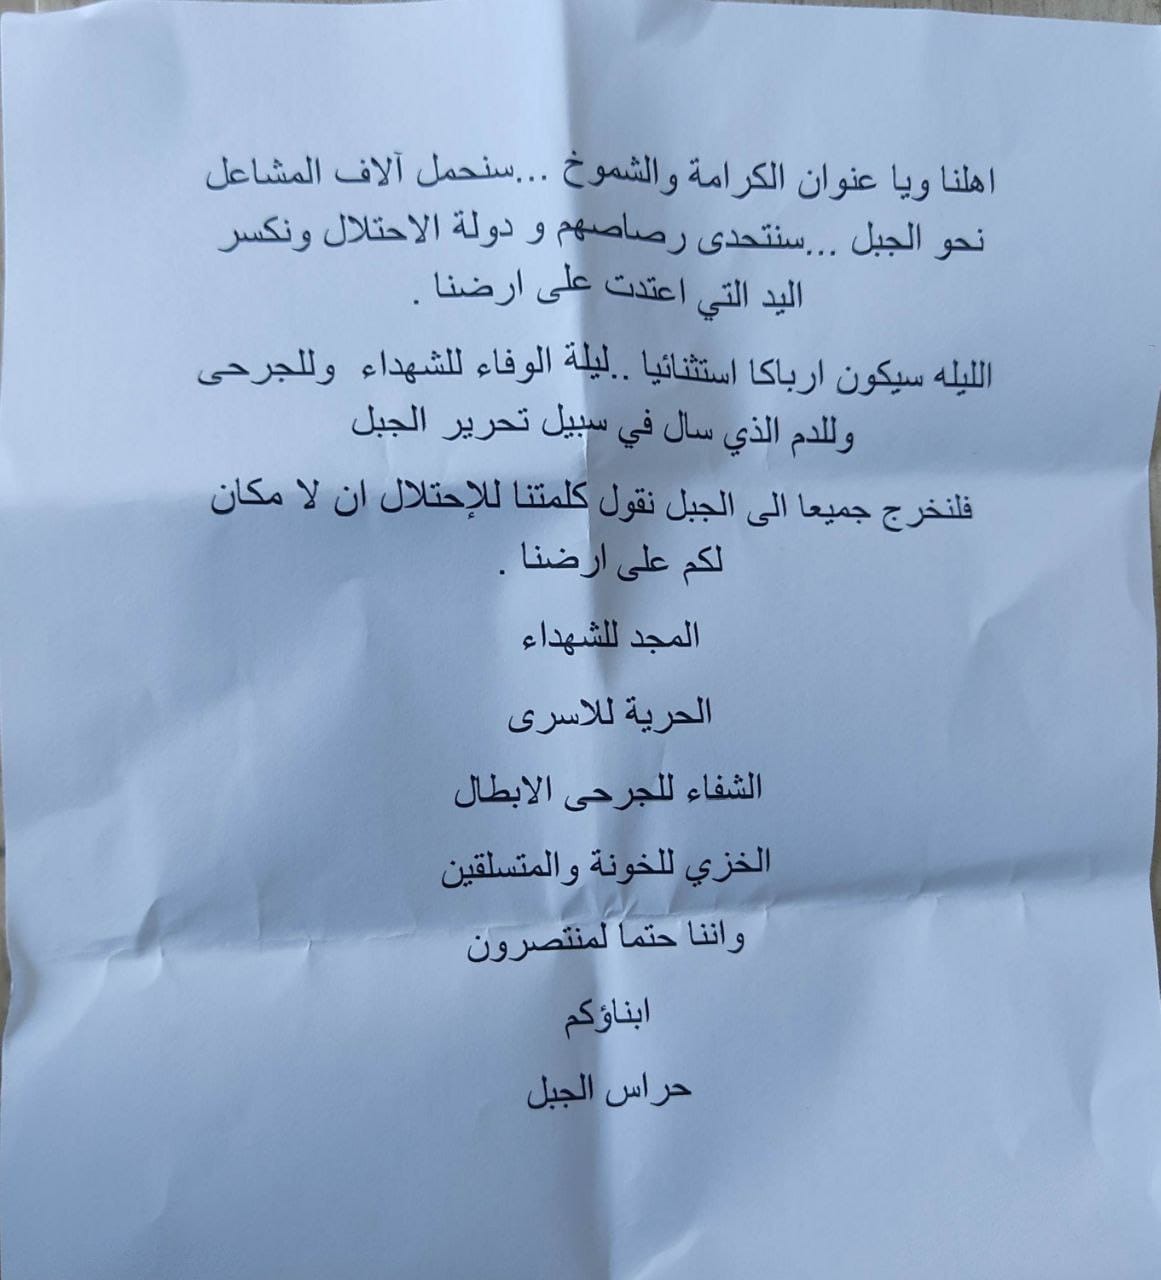 اهلنا ويا عنوان الكرامة والشموخ ...سنحمل آلاف المشاعل
نحو الجبل ...سنتحدى رصاصهم و دولة الاحتلال ونكسر
اليد التي اعتدت على ارضنا .
الليله سيكون ارباكا استثنائيا ..ليلة الوفاء للشهداء وللجرحى
وللدم الذي سال في سبيل تحرير الجبل
فلنخرج جميعا الى الجبل نقول كلمتنا للإحتلال ان لا مكان
لكم على ارضنا .
المجد للشهداء
الحرية للاسرى
الشفاء للجرحى الابطال
الخزي للخونة والمتسلقين
واننا حتما لمنتصرون
ابناؤكم
حراس الجبل